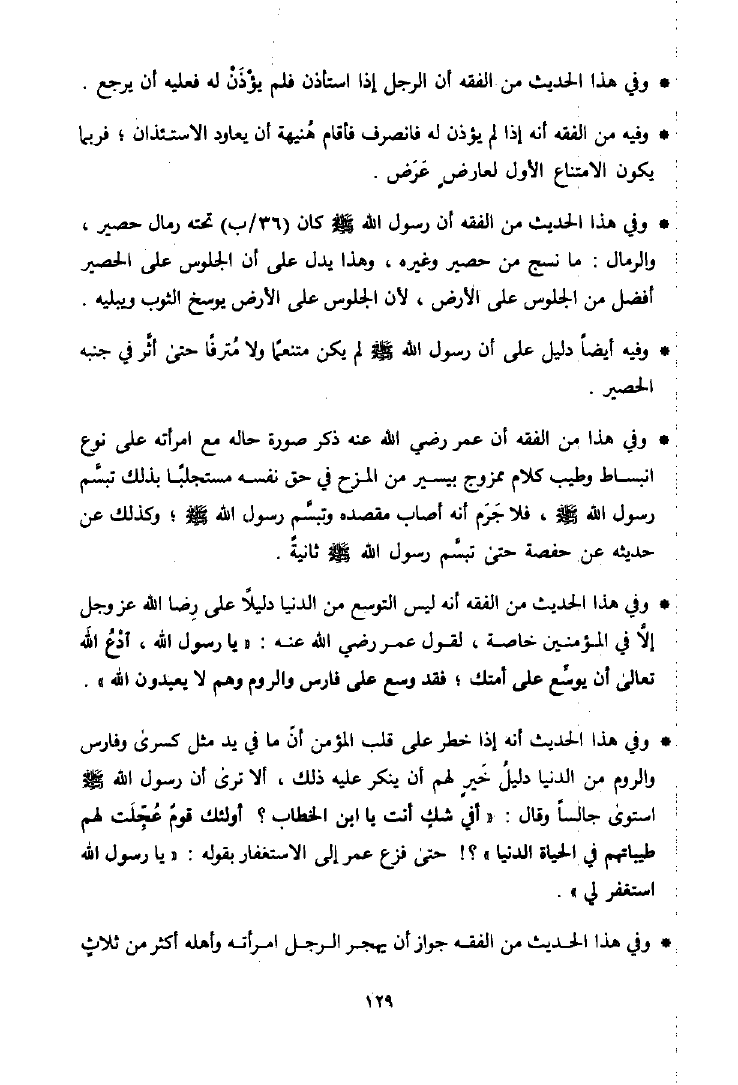 * وفي هذا الحديث من الفقه أن الرجل إذا استأذن فلم يؤْذَنْ له فعليه أن يرجع .
* وفيه من الفقه أنه إذا لم يؤذن له فانصرف فأقام هُنيهة أن يعاود الاستئذان ؛ فربما
يكون الامتناع الأول لعارضٍ عَرَض .
* وفي هذا الحديث من الفقه أن رسول الله ﷺ كان (٣٦/ب) تحته رمال حصير ،
والرمال : ما نسج من حصير وغيره ، وهذا يدل على أن الجلوس على الحصير
أفضل من الجلوس على الأرض ، لأن الجلوس على الأرض يوسخ الثوب ويبليه .
* وفيه أيضاً دليل على أن رسول الله ﷺ لم يكن متنعمًا ولا مُترفًا حتىٰ أثَّر في جنبه
الحصير .
* وفي هذا من الفقه أن عمر رضي الله عنه ذكر صورة حاله مع امرأته على نوع
انبساط وطيب كلام ممزوج بيسير من المزح في حق نفسه مستجلبًا بذلك تبسَّم
رسول الله ﷺ ، فلا جَرَم أنه أصاب مقصده وتبسَّم رسول الله ﷺ ؛ وكذلك عن
حديثه عن حفصة حتىٰ تبسَّم رسول الله ﷺ ثانيةً .
* وفي هذا الحديث من الفقه أنه ليس التوسع من الدنيا دليلًا على رِضا الله عز وجل
إلَّا في المؤمنين خاصة ، لقول عمر رضي الله عنه : « يا رسول الله ، أدْعُ الله
تعالىٰ أن يوسِّع على أمتك ؛ فقد وسع على فارس والروم وهم لا يعبدون الله » .
* وفي هذا الحديث أنه إذا خطر على قلب المؤمن أنّ ما في يد مثل كسرىٰ وفارس
والروم من الدنيا دليلُ خَيرٍ لهم أن ينكر عليه ذلك ، ألا ترىٰ أن رسول الله ﷺ
استوىٰ جالساً وقال : « أفي شكٍ أنت يا ابن الخطاب ؟ أولئك قومٌ عُجِّلَت لهم
طيباتهم في الحياة الدنيا » ؟! حتىٰ فزع عمر إلى الاستغفار بقوله : « يا رسول الله
استغفر لي » .
* وفي هذا الحديث من الفقه جواز أن يهجر الرجل امرأته وأهله أكثر من ثلاثٍ
١٢٩